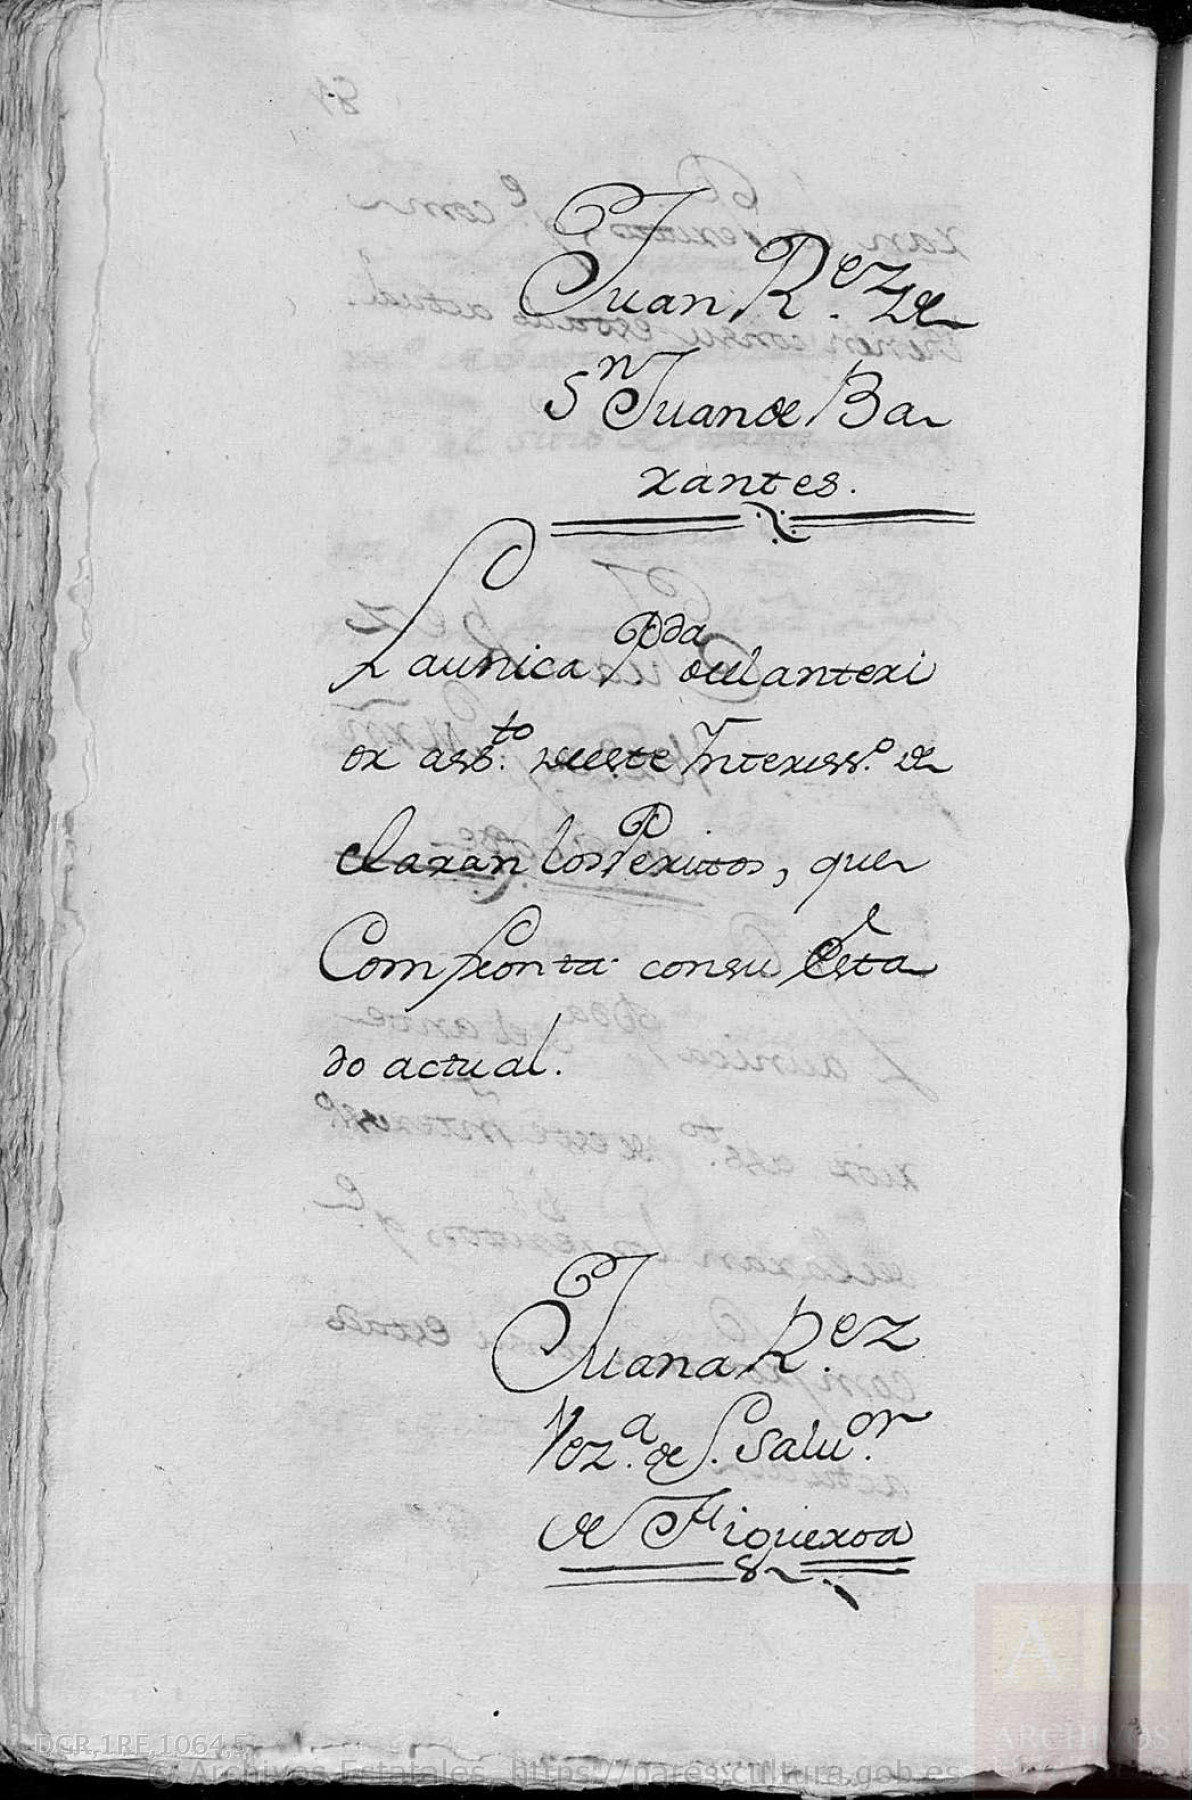 Juan R.ez de
Sn Juan de Ba
rantes.
La unica Pda del anteri
or ass.to de este Interess.o de
claran los Peritos, que
Confronta con su Esta
do actual.
Juana R.ez
Vez.a de S. Salu.or
de Figueroa
DCR,1RE,1064,5
© Archivos Estatales, https://pares.cultura.gob.es
A E
ARCHIVOS